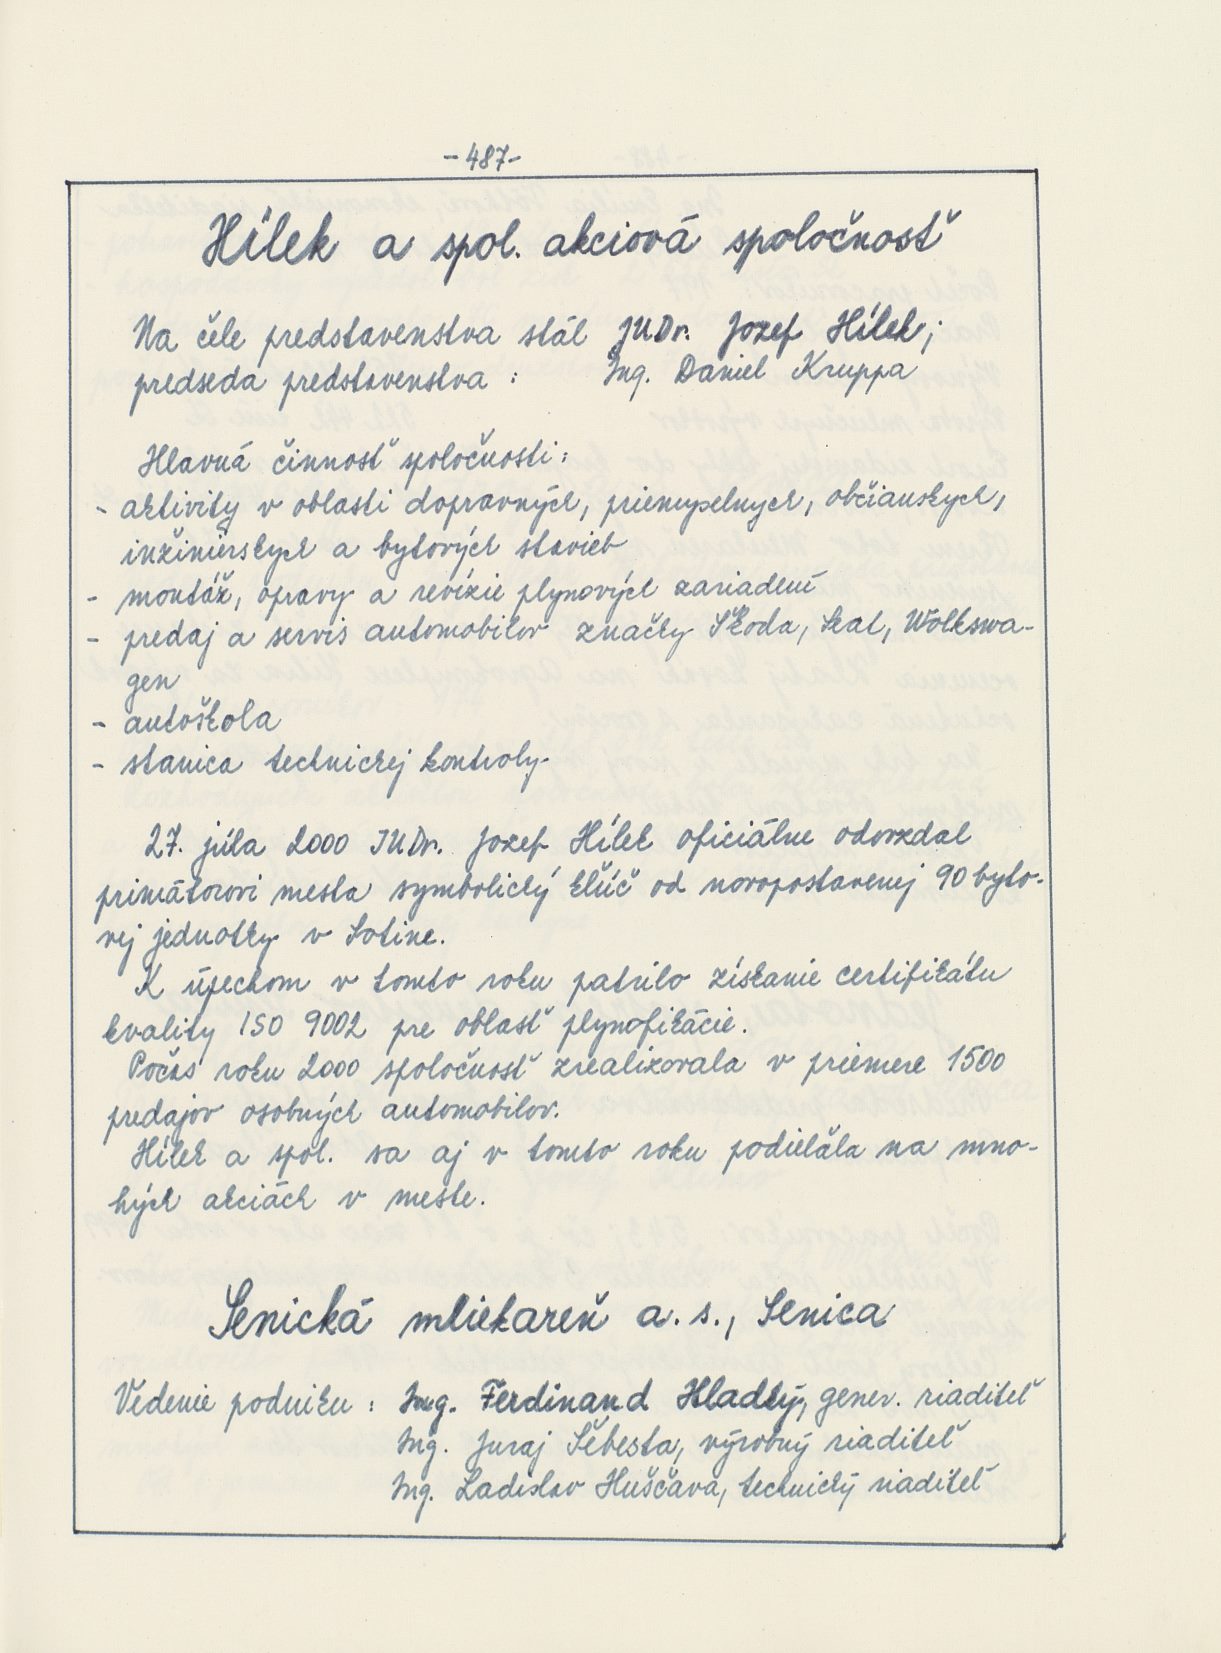 -487-
Hílek a spol. akciová spoločnosť
Na čele predstavenstva stál JUDr. Jozef Hílek;
predseda predstavenstva : Ing. Daniel Kruppa
Hlavná činnosť spoločnosti:
- aktivity v oblasti dopravných, priemyselných, občianskych,
inžinierskych a bytových stavieb
- montáž, opravy a revízie plynových zariadení
- predaj a servis automobilov značky Škoda, Seat, Wolkswa-
gen
- autoškola
- stanica technickej kontroly.
27. júla 2000 JUDr. Jozef Hílek oficiálne odovzdal
primátorovi mesta symbolický kľúč od novopostavenej 90 byto-
vej jednotky v Sotine.
K úpechom v tomto roku patrilo získanie certifikátu
kvality ISO 9002 pre oblasť plynofikácie.
Počas roku 2000 spoločnosť zrealizovala v priemere 1500
predajov osobných automobilov.
Hílek a spol. sa aj v tomto roku podieľala na mno-
hých akciách v meste.
Senická mliekareň a. s., Senica
Vedenie podniku : Ing. Ferdinand Hladký, gener. riaditeľ
Ing. Juraj Šebesta, výrobný riaditeľ
Ing. Ladislav Huščava, technický riaditeľ